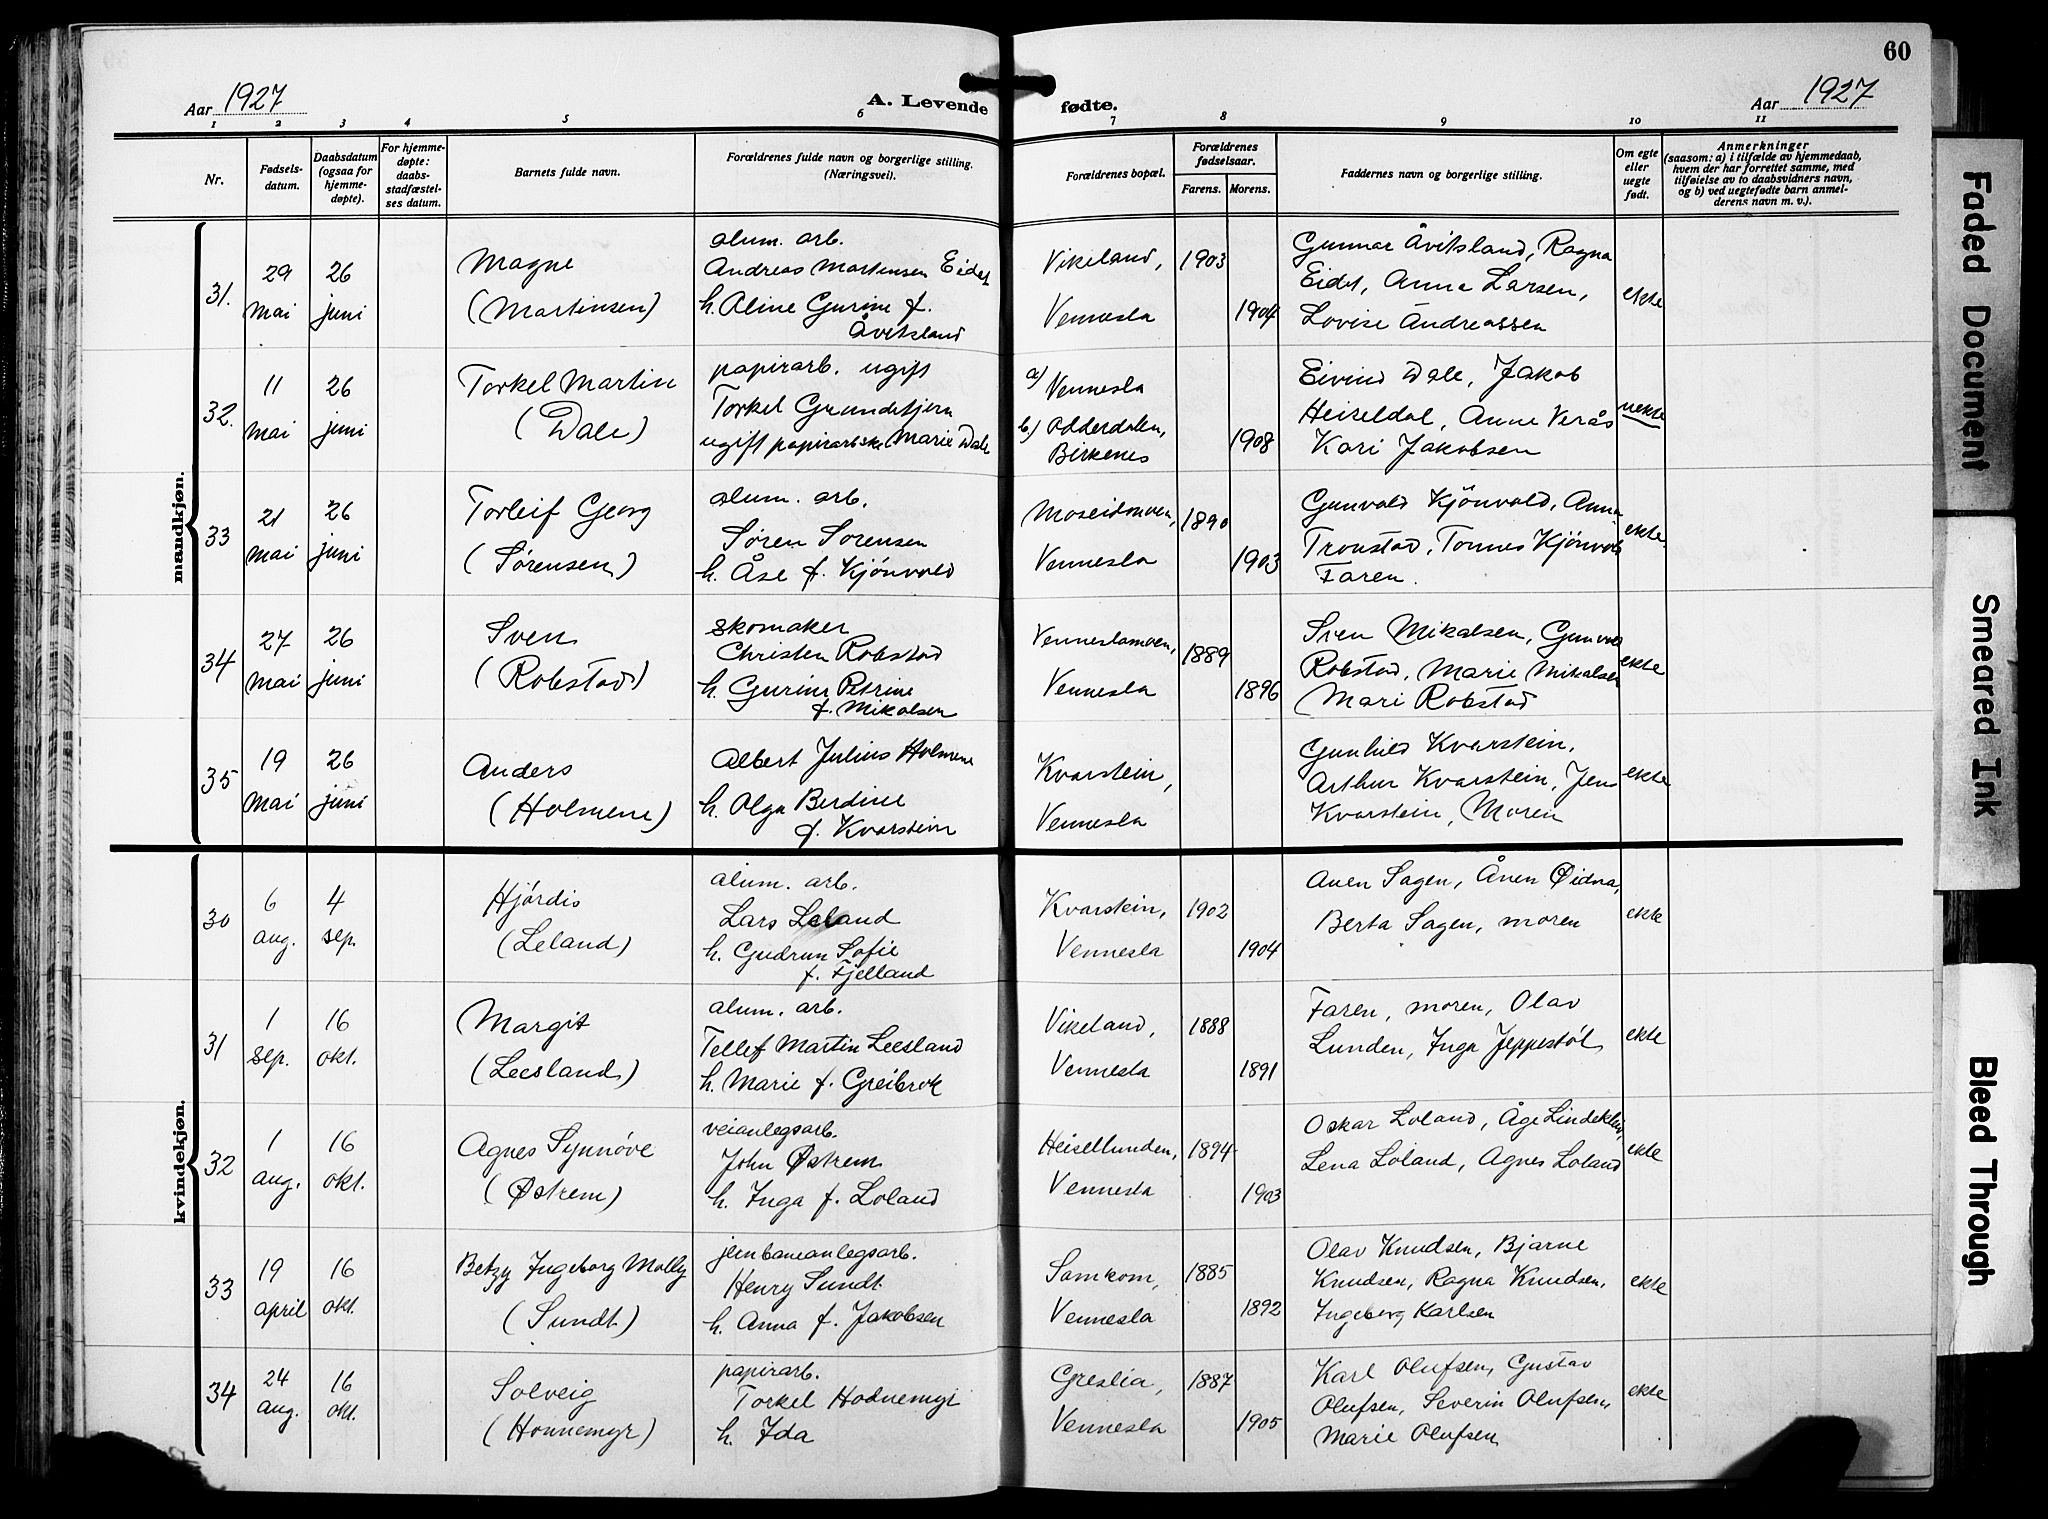 60
Aar 1927
A. Levende fødte.
Aar 1927
1 2 3 4 5 6 7 8 9 10 11
Nr.
Fødsels-
datum.
Daabsdatum
(ogsaa for
hjemme-
døpte).
For hjemme-
døpte:
daabs-
stadfæstel-
ses datum.
Barnets fulde navn.
Forældrenes fulde navn og borgerlige stilling.
(Næringsvei).
Forældrenes bopæl.
Forældrenes
fødselsaar.
Farens. Morens.
Faddernes navn og borgerlige stilling.
Om egte
eller
uegte
født.
Anmerkninger
(saasom: a) i tilfælde av hjemmedaab,
hvem der har forrettet samme, med
tilføielse av to daabsvidners navn,
og b) ved uegtefødte barn anmel-
derens navn m. v.).
mandkjøn.
31.
29
mai
26
juni
Magne
(Martinsen)
alum. arb.
Andreas Martinsen Eidet
h. Aline Gurine f.
Åvitsland
Vikeland,
Vennesla
1903
1904
Gunnar Åvitsland, Ragna
Eidet, Anna Larsen,
Lovise Andreassen
ekte
32.
11
mai
26
juni
Torkel Martin
(Dale)
papirarb. ugift
Torkel Grundetjern
ugift papirarbske Marie Dale
a) Vennesla
b) Odderdalen,
Birkenes
1908
Eivind Dale, Jakob
Heiseldal, Anne Verås
Kari Jakobsen
uekte
33
21
mai
26
juni
Torleif Georg
(Sørensen)
alum. arb.
Søren Sørensen
h. Åse f. Kjönvold
Moseidmoen,
Vennesla
1890
1903
Gunvald Kjönvold, Anna
Tronstad, Tønnes Kjönvold
Faren.
ekte.
34
27
mai
26
juni
Sven
(Robstad)
skomaker
Christen Robstad
h. Gurine Petrine
f. Mikalsen
Venneslamoen,
Vennesla
1889
1896
Sven Mikalsen, Gunvald
Robstad, Marie Mikalsen
Mari Robstad
ekte
35
19
mai
26
juni
Anders
(Holmene)
Albert Julius Holmene
h. Olga Berdine
f. Kvarstein
Kvarstein,
Vennesla
Gunhild Kvarstein,
Arthur Kvarstein, Jens
Kvarstein, Moren
ekte
kvindekjøn.
30
6
aug.
4
sep.
Hjørdis
(Leland)
alum. arb.
Lars Leland
h. Gudrun Sofie
f. Fjelland
Kvarstein,
Vennesla
1902
1904
Anen Sagen, Ånen Øidna,
Berta Sagen, moren
ekte
31
1
sep.
16
okt.
Margit
(Leesland)
alum. arb.
Tellef Martin Leesland
h. Marie f. Greibrok
Vikeland,
Vennesla
1888
1891
Faren, moren, Olav
Lunden, Inga Jeppestøl
ekte
32
1
aug.
16
okt.
Agnes Synnøve
(Østrem)
veianlegsarb.
John Østrem
h. Inga f. Loland
Heisellunden,
Vennesla
1894
1903
Oskar Loland, Åge Lindekleiv,
Lena Loland, Agnes Loland
ekte
33
19
april
16
okt.
Betzy Ingeborg Molly
(Sundt)
jernbaneanlegsarb.
Henry Sundt
h. Anna f. Jakobsen
Samkom,
Vennesla
1885
1892
Olav Knudsen, Bjarne
Knudsen, Ragna Knudsen,
Ingeborg Karlsen
ekte
34
24
aug.
16
okt.
Solveig
(Honnemyr)
papirarb.
Torkel Hodnemyr
h. Ida
Greslia,
Vennesla
1887
1905
Karl Olufsen, Gustav
Olufsen, Severin Olufsen,
Marie Olufsen
ekte
Faded Document
Smeared Ink
Bleed Through